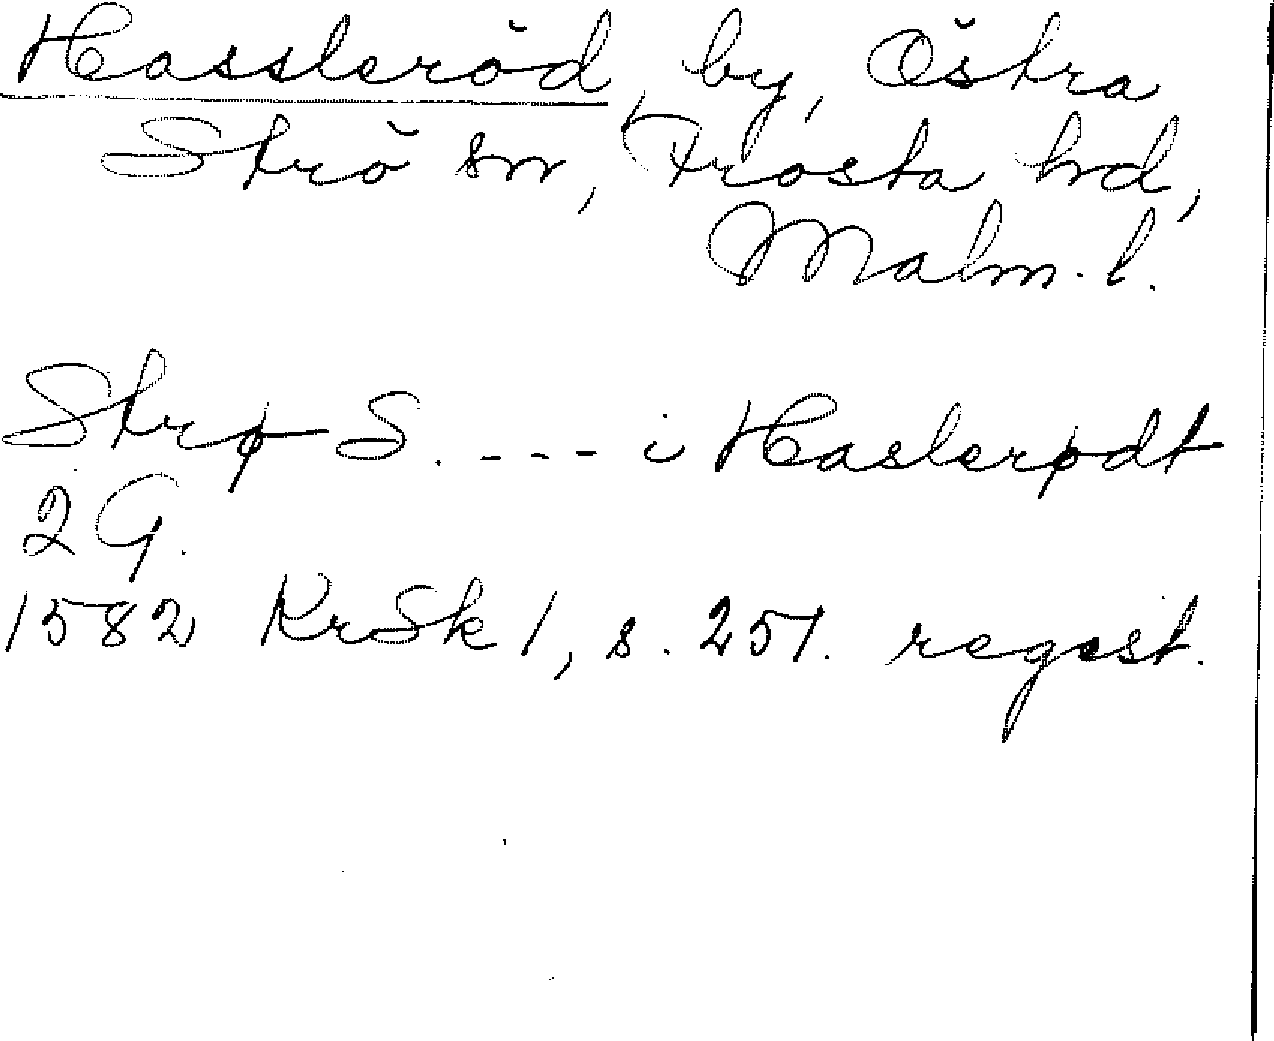 Hassleröd, by, Östra
Strö sn, Frosta hd,
Malm. l.
Strø S. - - - i Haslerødt
2 G.
1582 KrSk 1, s. 251. regest.